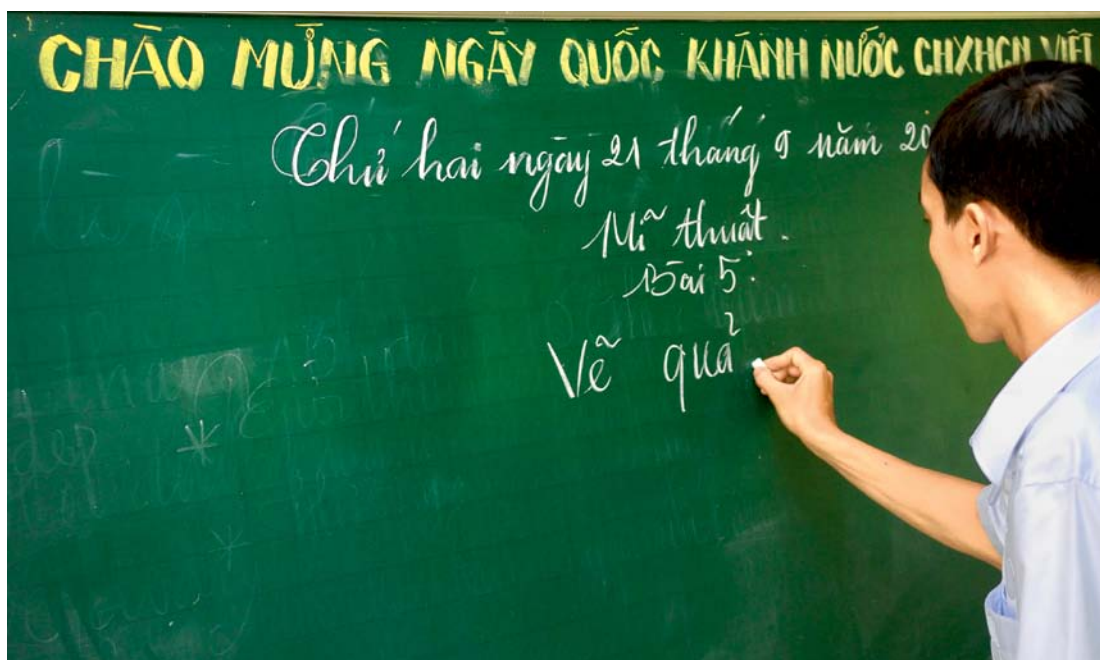 CHÀO MỪNG NGÀY QUỐC KHÁNH NƯỚC CHXHCN VIỆT
Thứ hai ngày 21 tháng 9 năm 20
Mĩ thuật.
Bài 5:
Vẽ quả
đẹp